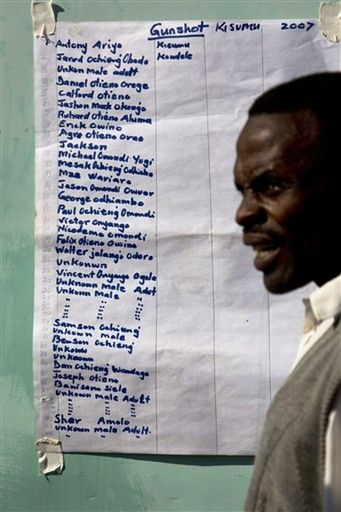 Gunshot KISUMU 2007
Antony Ariyo Kisumu
Jarod Ochieng Obado Kondele
Unkon male adult
Daniel Otieno Orege
Calford Otieno
Jashon Mark Okongo
Richard Otieno Ahuma
Erick Owino
Agre Otieno Oreo
Jackson
Michael Omondi Yugi
Mesak Ochieng Odhiabo
Mze Wariaro
Jason Omondi Owuor
George odhiambo
Paul Ochieng Omondi
Victor Onyango
Nicodemo omondi
Felix Otieno Owino
Walter jalango odoro
Unkonwn
Vincent Onyango Ogola
Unknown Male Adurt
Unkown Male
" " "
" " "
Samson Ochieng
Unkown male
Benson Ochieng
Unkown
Unknown
Dan Ochieng Wandago
Joseph Otieno
Banisana Siele
Unkown male Adult
" " "
" " "
Sher Amolo
Unkown male Adult.